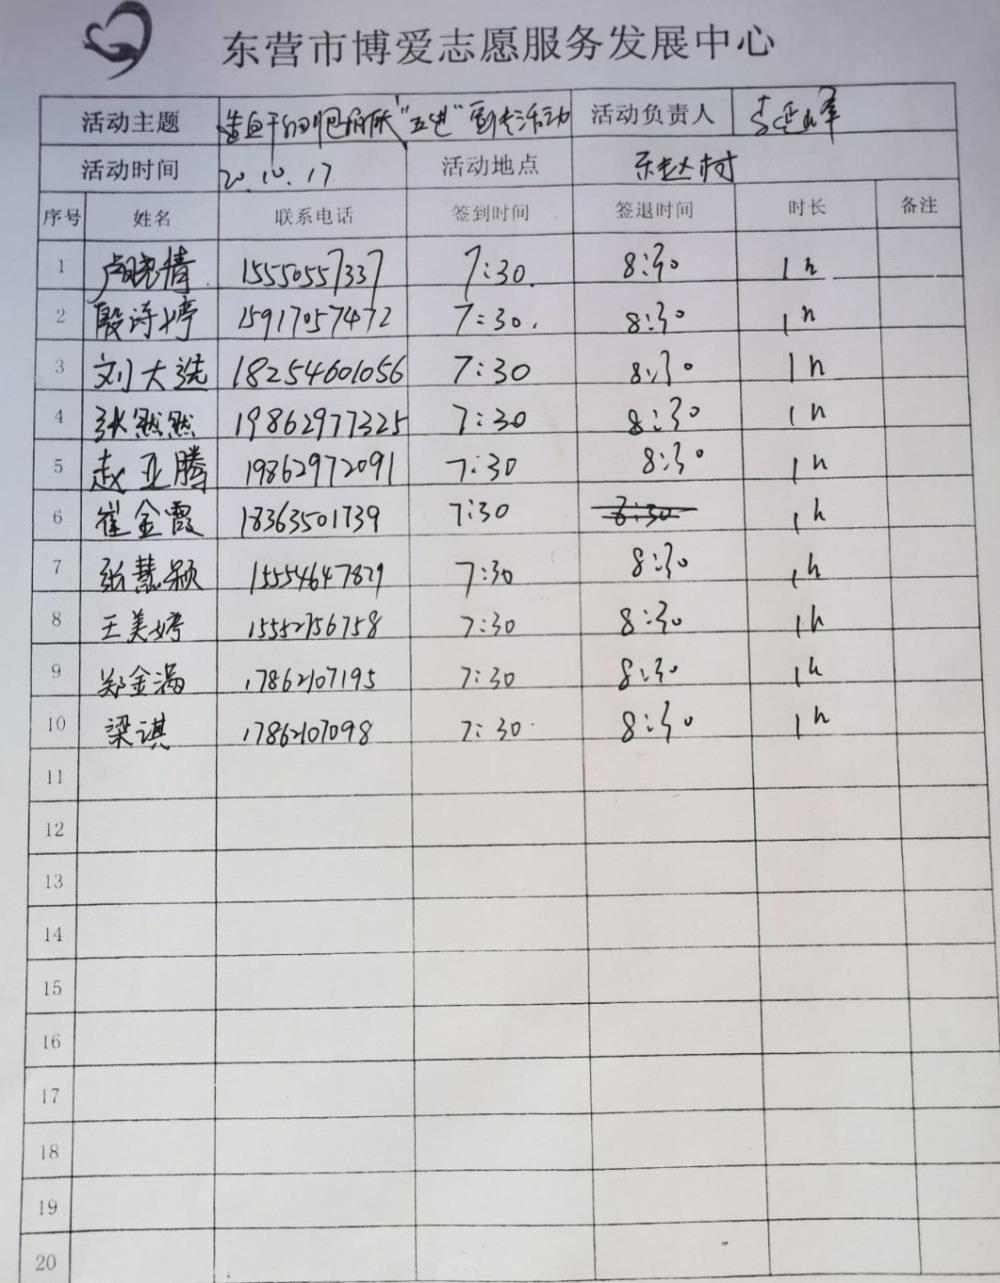 东营市博爱志愿服务发展中心
活动主题 造血干细胞捐献"五进"宣传活动 活动负责人
活动时间 20.10.17 活动地点 东赵村
序号 姓名 联系电话 签到时间 签退时间 时长 备注
1 卢晓倩 15550557337 7:30. 8:30 1h
2 殷诗婷 15917057472 7:30. 8:30 1h
3 刘大选 18254601056 7:30 8:30 1h
4 张然然 19862977325 7:30 8:30 1h
5 赵亚腾 19862972091 7:30 8:30 1h
6 崔金霞 18363501739 7:30 8:30 1h
7 张慧颖 15554647829 7:30 8:30 1h
8 王美婷 15552756758 7:30 8:30 1h
9 郑金满 17862107195 7:30 8:30 1h
10 梁淇 17862107098 7:30 8:30 1h
11
12
13
14
15
16
17
18
19
20